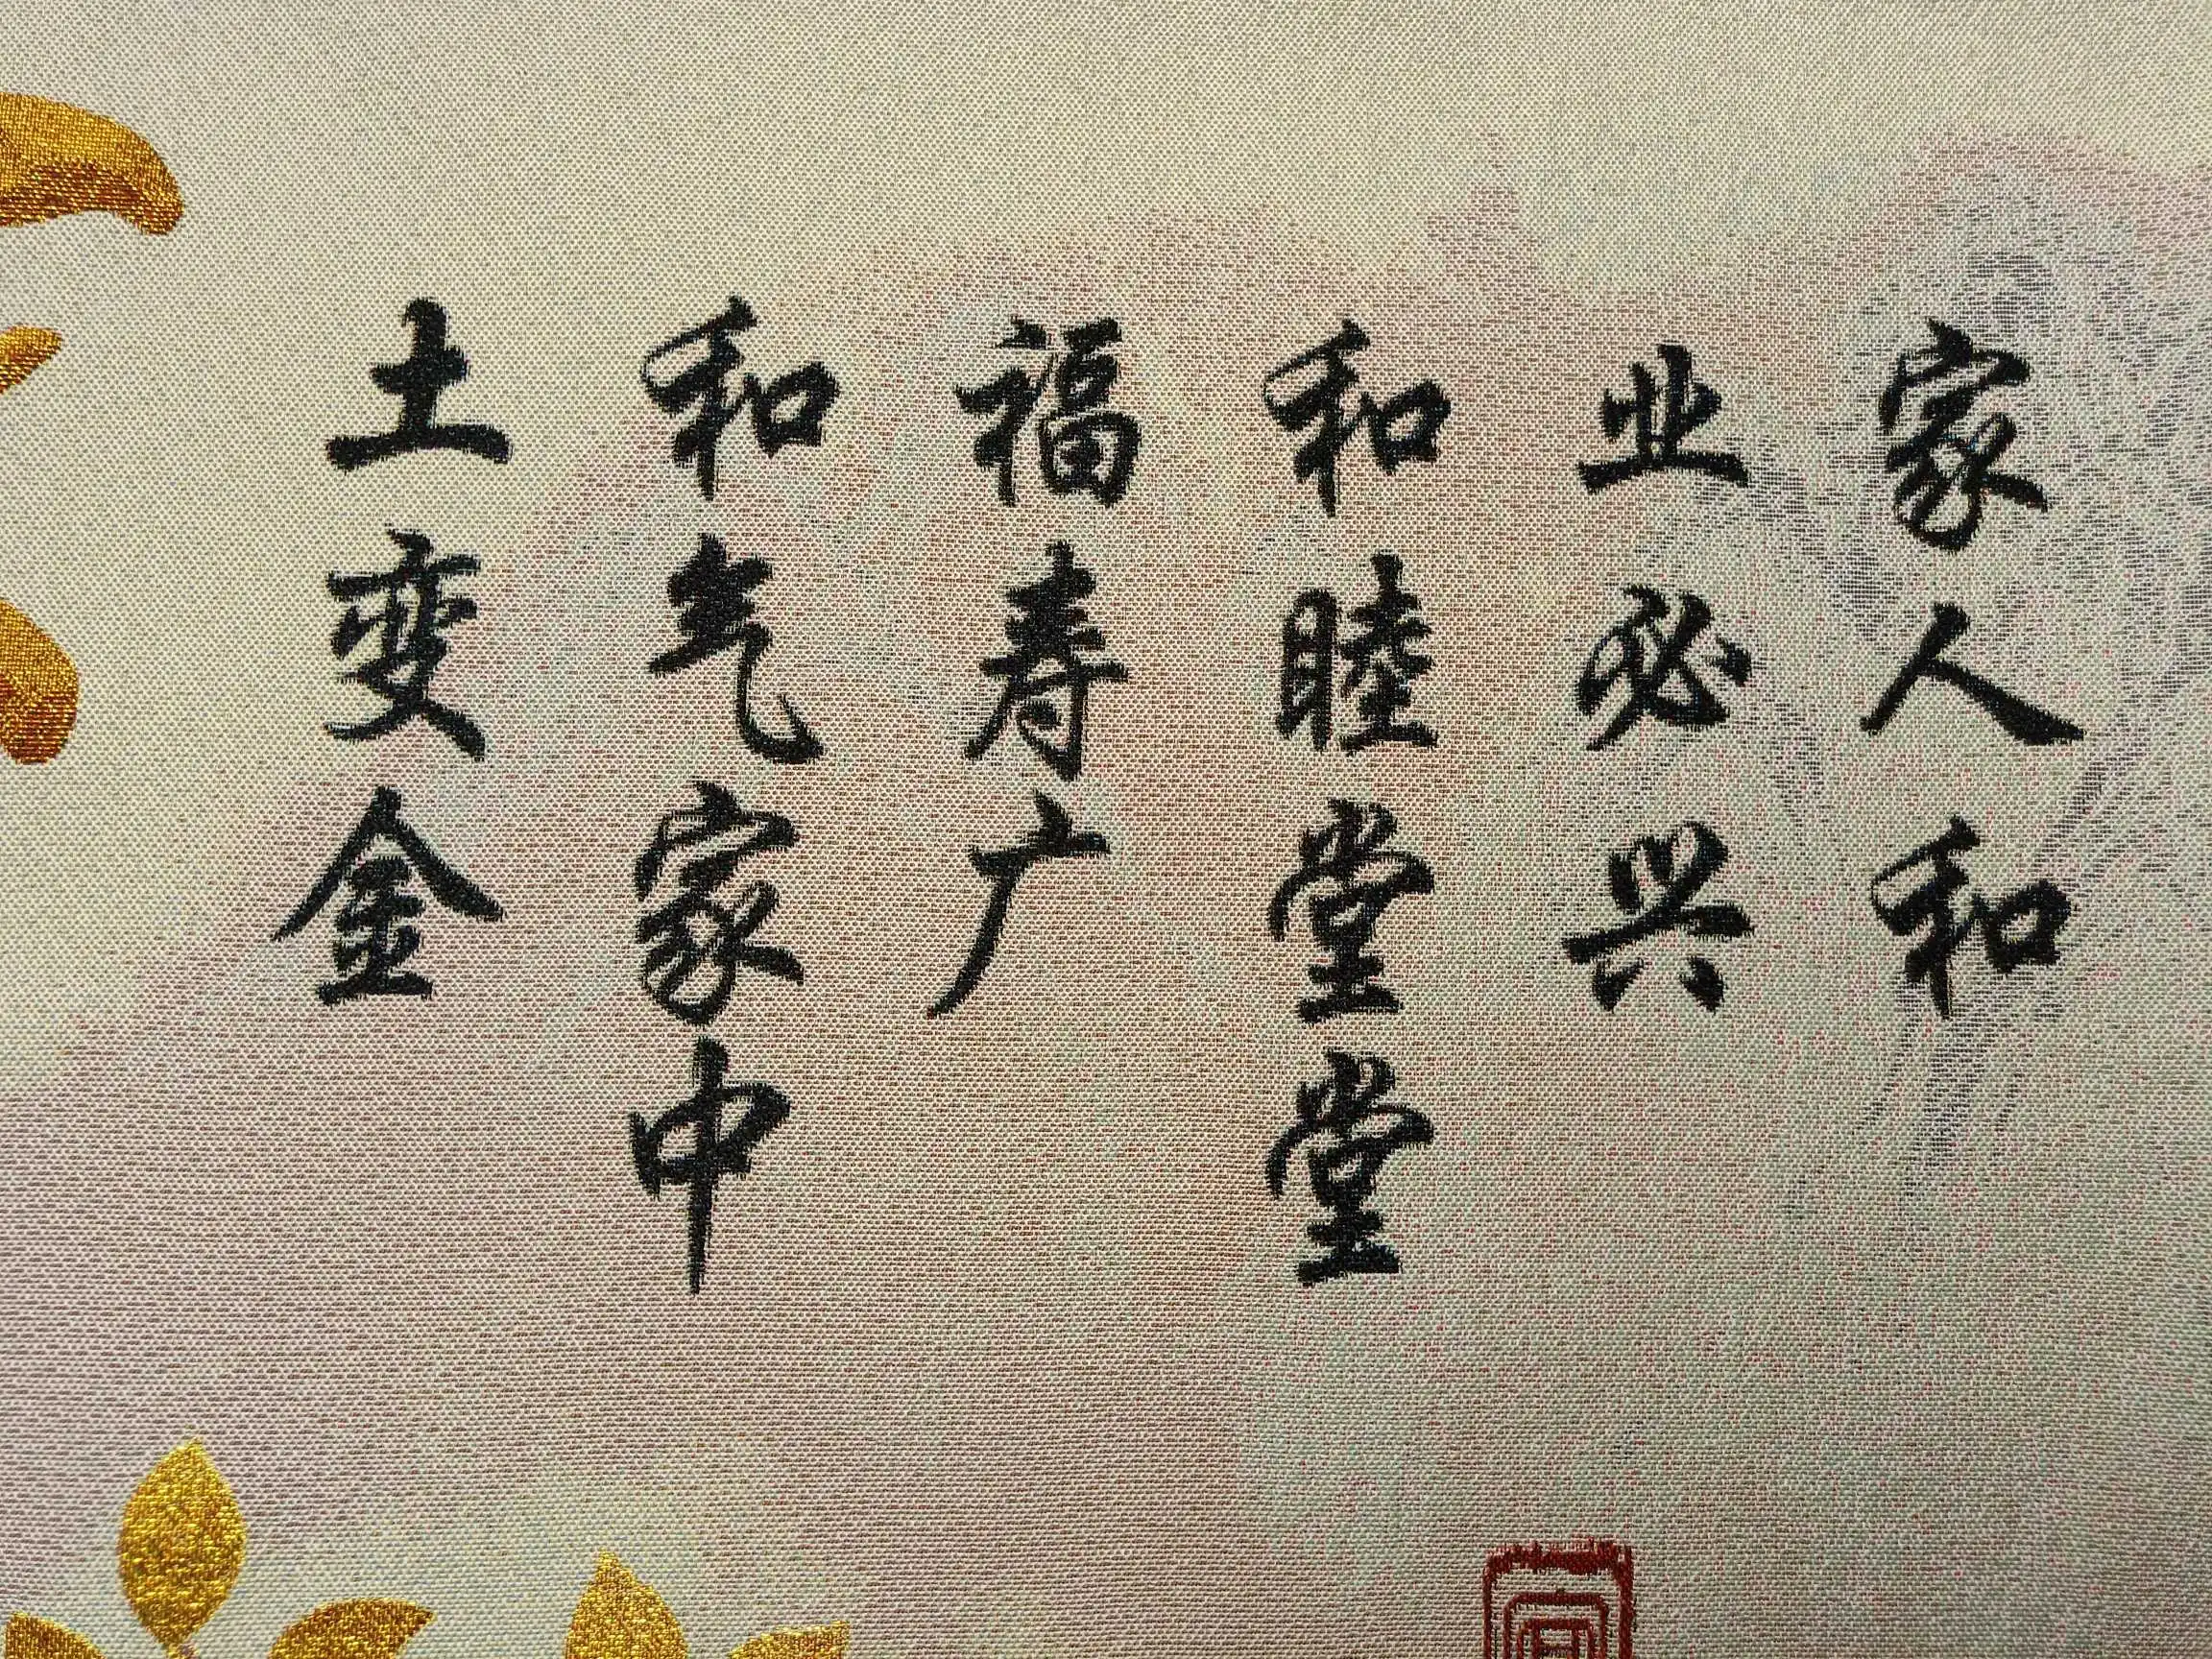 家人和
业必兴
和睦堂堂
福寿广
和气家中
土变金